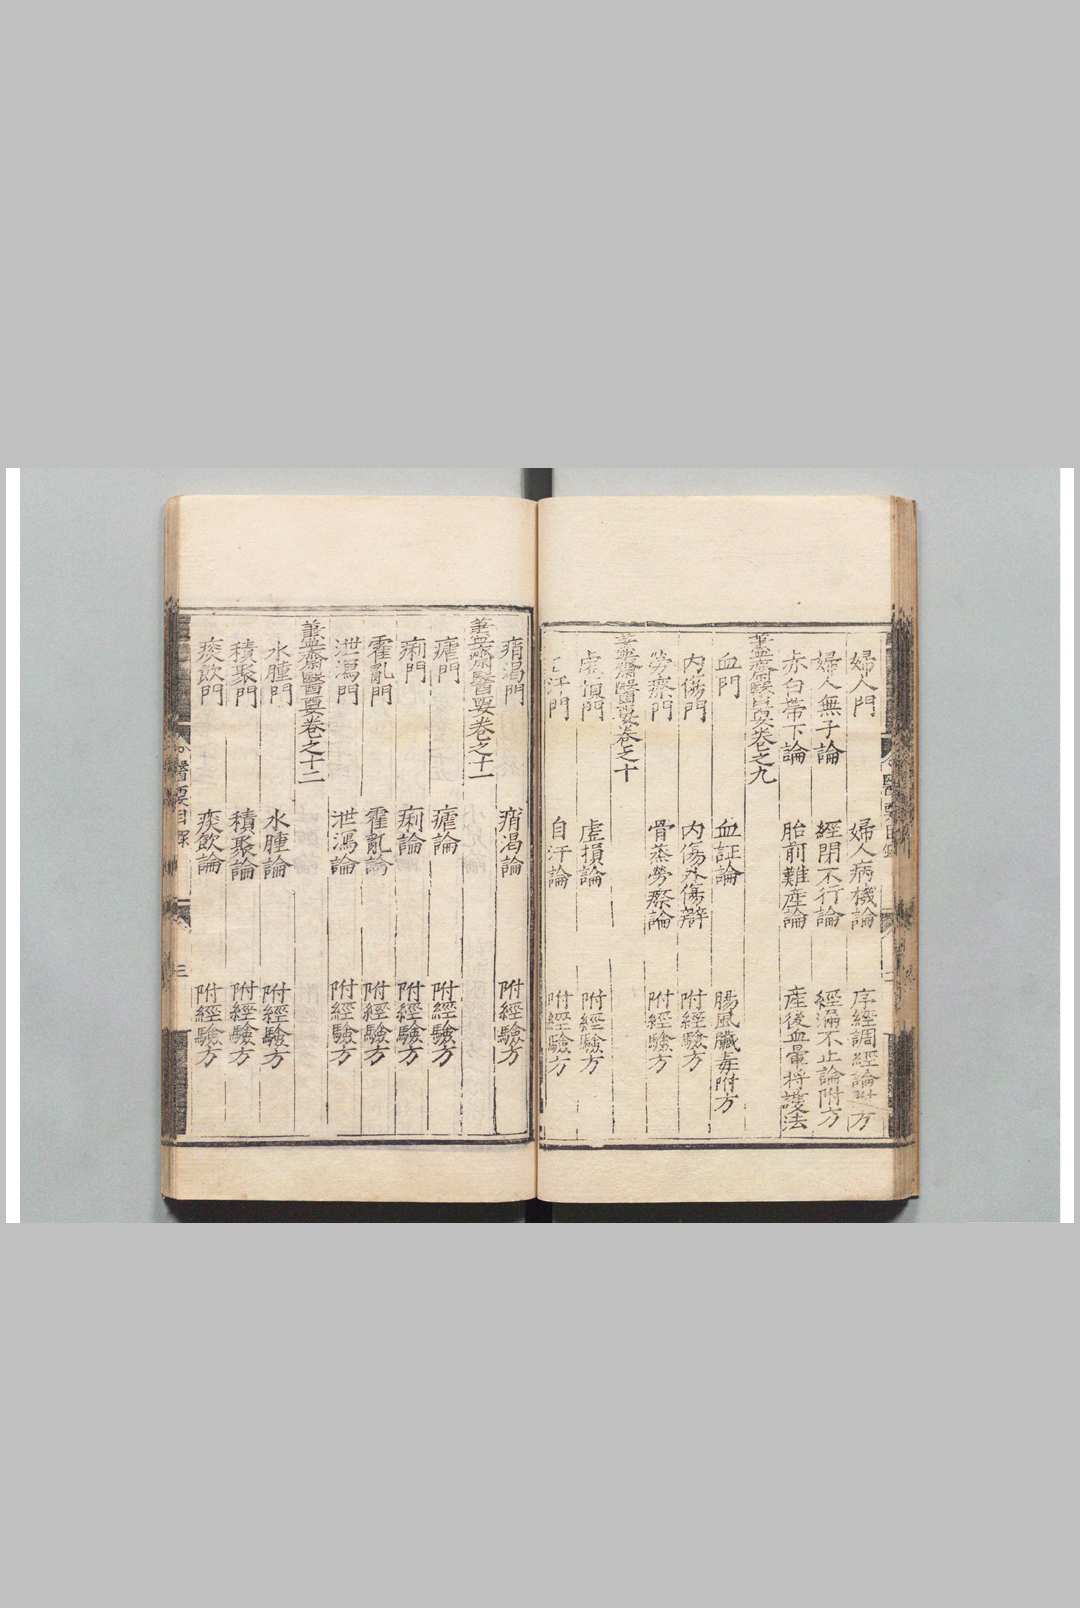 婦人門 婦人病機論 序經調經論附方
婦人無子論 經閉不行論 經漏不止論附方
赤白帶下論 胎前難產論 產後血暈將護法
藎齋醫要卷之九
血門 血証論 腸風臟毒附方
內傷門 內傷外傷辯 附經驗方
勞瘵門 骨蒸勞瘵論 附經驗方
藎齋醫要卷之十
虛損門 虛損論 附經驗方
汗門 自汗論 附經驗方
痟渴門 痟渴論 附經驗方
藎齋醫要卷之十一
瘧門 瘧論 附經驗方
痢門 痢論 附經驗方
霍亂門 霍亂論 附經驗方
泄瀉門 泄瀉論 附經驗方
藎齋醫要卷之十二
水腫門 水腫論 附經驗方
積聚門 積聚論 附經驗方
痰飲門 痰飲論 附經驗方
醫要目錄 三